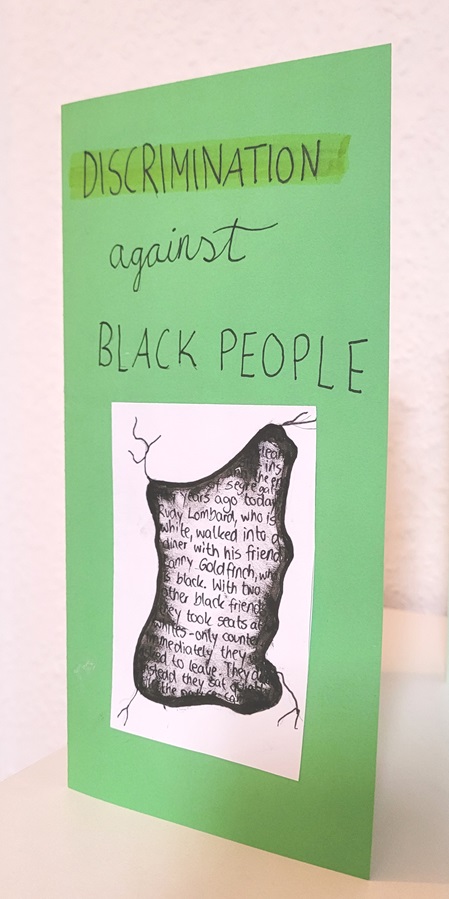 DISCRIMINATION
against
BLACK PEOPLE
ins
of segre
years ago today
Rudy Lombard, who is
white, walked into a
diner with his friend
anny Goldfinch, wh
s black. With two
other black friend
they took seats at
whites-only counte
mmediately they
ked to leave. They d
stead they sat
the